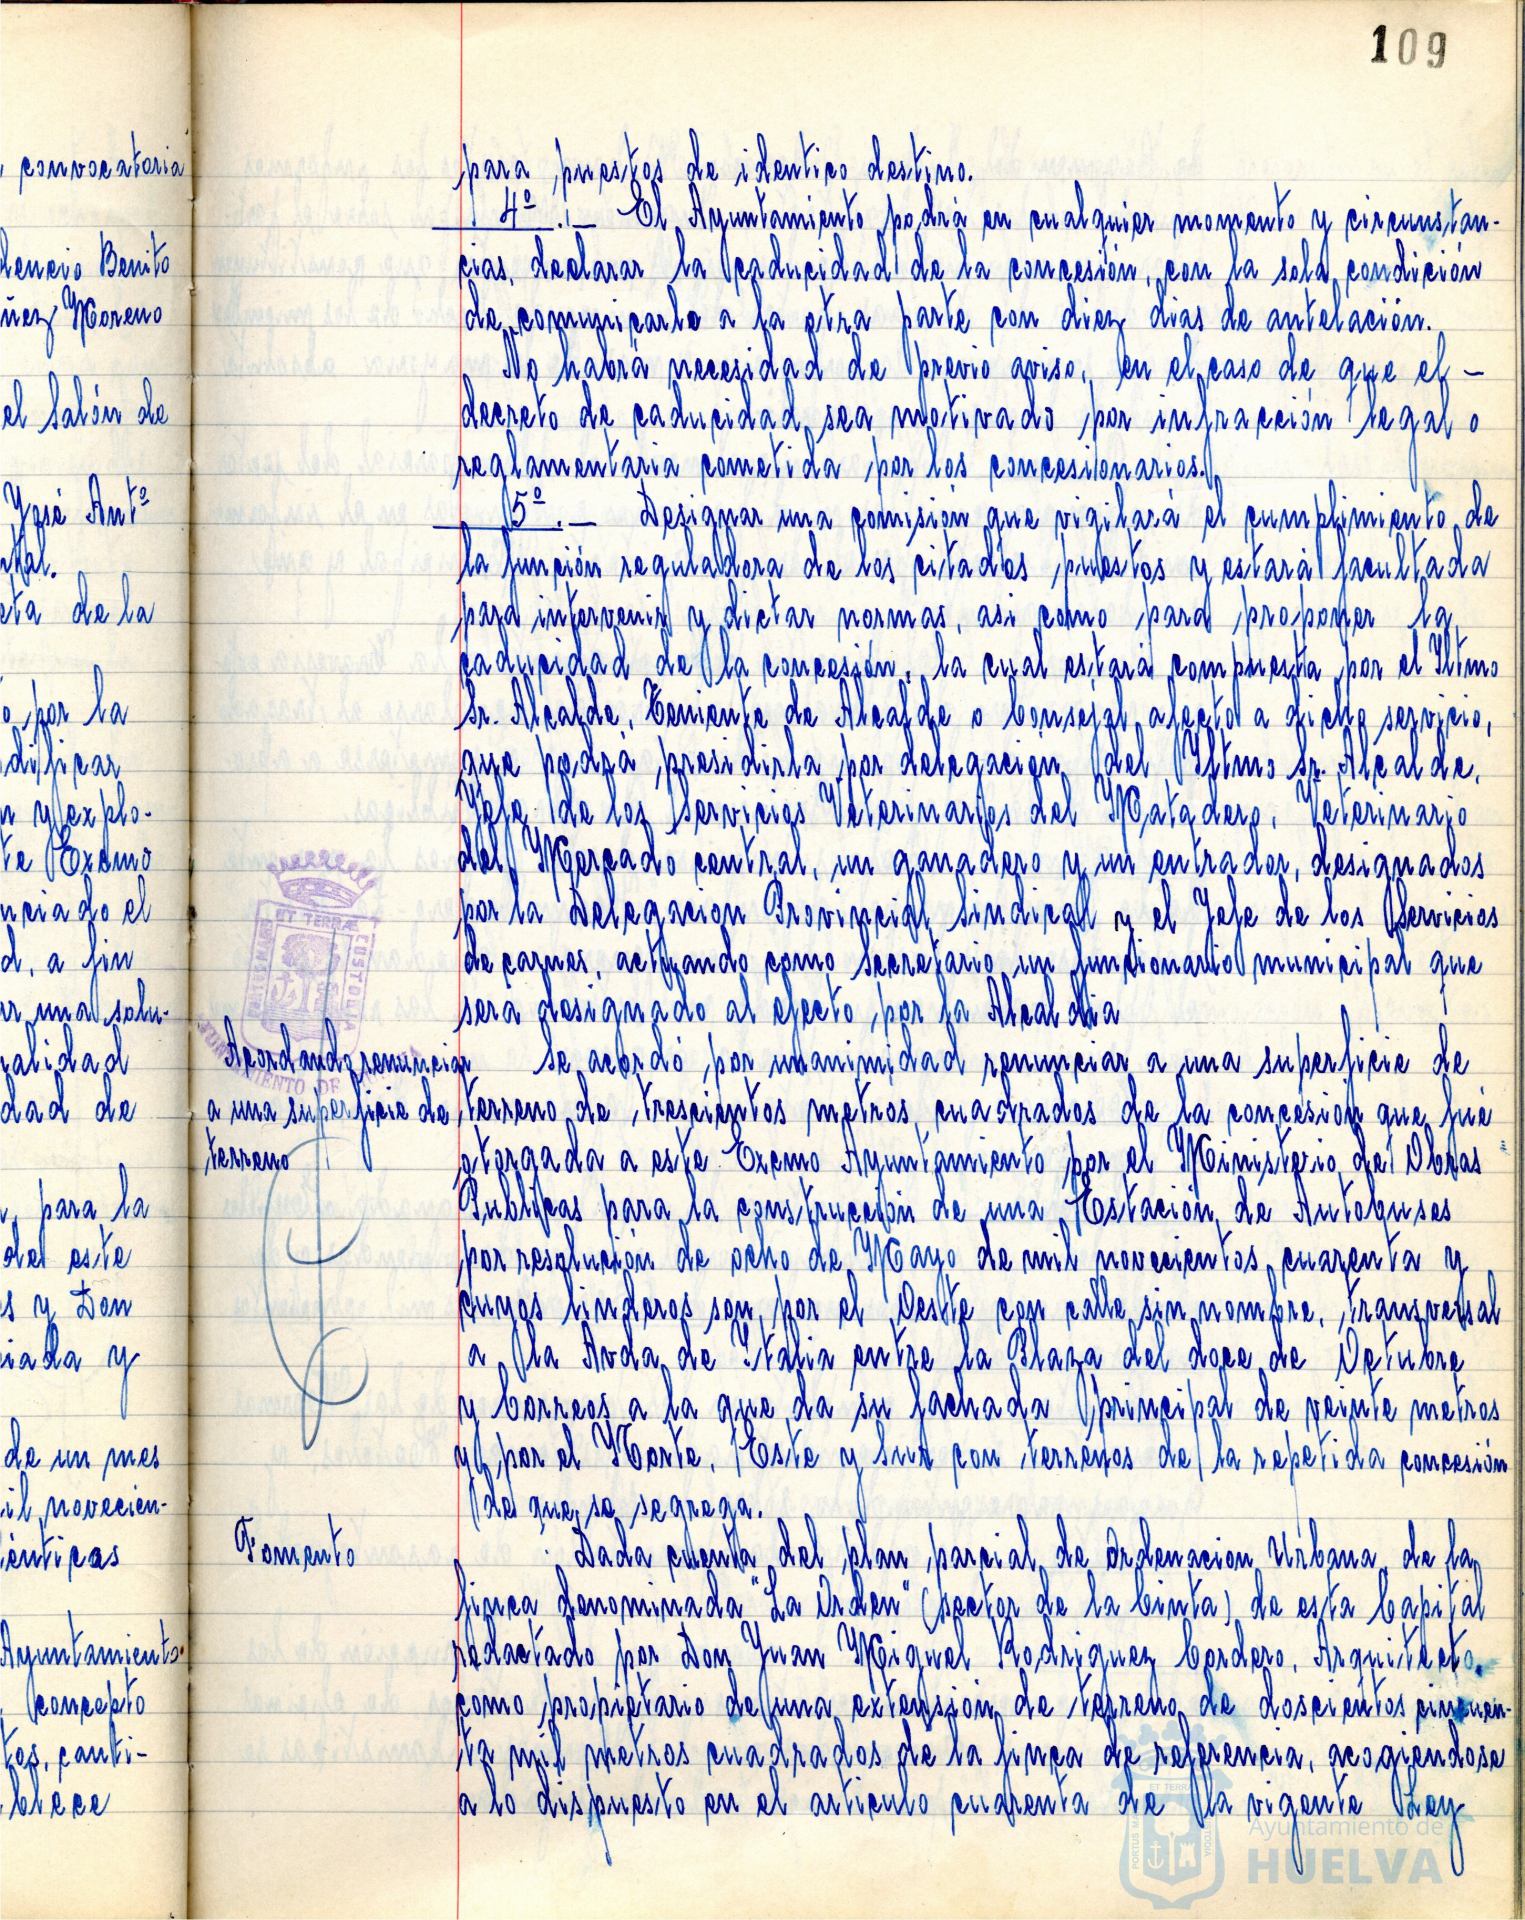 109
, convocatoria
dencio Benito
ñez Moreno
el Salón de
José Antº
ntal.
eta de la
o por la
dificar
n y explo-
te Excmo
nciado el
d, a fin
ar una solu-
alidad
dad de
, para la
de este
s y Don
iada y
de un mes
il novecien-
énticas
Ayuntamiento.
, concepto
tos, canti-
blece
para puestos de identico destino.
4º .- El Ayuntamiento podrá en cualquier momento y circunstan-
cias, declarar la caducidad de la concesión, con la sola condición
de comunicarlo a la otra parte con diez dias de antelación.
No habrá necesidad de previo aviso, en el caso de que el -
decreto de caducidad sea motivado por infracción legal o
reglamentaria cometida por los concesionarios.
5º .- Designar una comisión que vigilará el cumplimiento de
la función reguladora de los citados puestos y estará facultada
para intervenir y dictar normas, asi como para proponer la
caducidad de la concesión, la cual estará compuesta por el Iltmo
Sr. Alcalde, Teniente de Alcalde o Consejal afecto a dicho servicio,
que podrá presidirla por delegación del Iltmo Sr. Alcalde,
Jefe de los Servicios Veterinarios del Matadero, Veterinario
del Mercado central, un ganadero y un entrador, designados
por la Delegacion Provincial Sindical y el Jefe de los Servicios
de carnes, actuando como Secretario un funcionario municipal que
sera designado al efecto por la Alcaldia
Acordando renunciar
a una superficie de
terreno
Se acordó por unanimidad renunciar a una superficie de
terreno de trescientos metros cuadrados de la concesión que fué
otorgada a este Excmo Ayuntamiento por el Ministerio de Obras
Publicas para la construcción de una Estación de Autobuses
por resolución de ocho de Mayo de mil novecientos cuarenta y
cuyos linderos son por el Oeste con calle sin nombre, transversal
a la Avda de Italia entre la Plaza del doce de Octubre
y Correos a la que da su fachada principal de veinte metros
y por el Norte, Este y Sur con terrenos de la repetida concesión
de que se segrega.
Fomento
Dada cuenta del plan parcial de Ordenacion Urbana de la
finca denominada "La Orden" (sector de la Cinta) de esta Capital
redactado por Don Juan Miguel Rodriguez Cordero, Arquitecto,
como propietario de una extensión de terreno de doscientos cincuen-
ta mil metros cuadrados de la finca de referencia, acogiendose
a lo dispuesto en el articulo cuarenta de la vigente Ley
ET TERRAE CUSTODIA
Ayuntamiento de
HUELVA